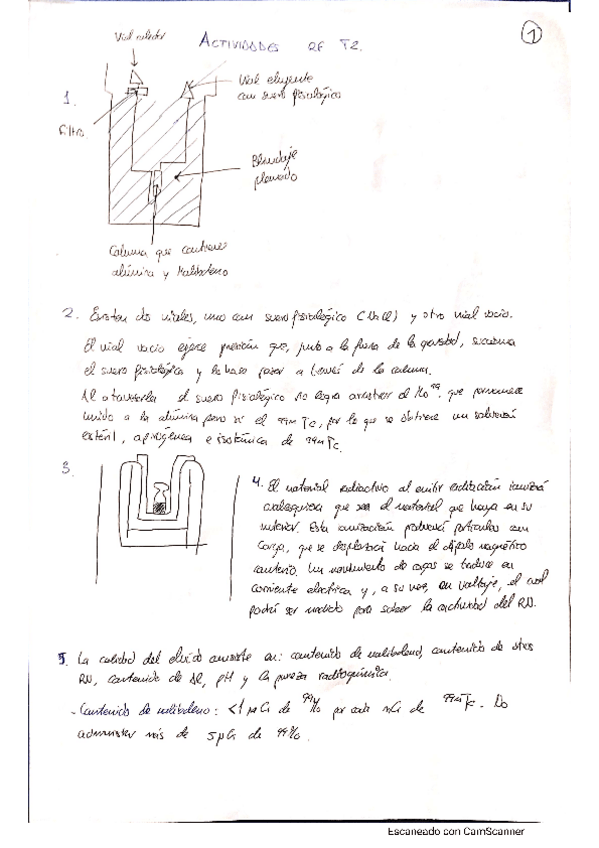 Vial colector
ACTIVIDADES RF T2.
1
1.
Vial eluyente
con suero fisiológico
Filtro
Blindaje
plomado
Columna que contiene
alúmina y Molibdeno
2. Existen dos viales, uno con suero fisiológico (NaCl) y otro vial vacio.
El vial vacio ejerce presión que, junto a la fuerza de la gravedad, succiona
el suero fisiológico y lo hace pasar a través de la columna.
Al atravesarla el suero fisiológico no logra arrastrar el Mo⁹⁹, que permanece
unido a la alúmina pero si el 99mTc, por lo que se obtiene un
estéril, apirógena e isotónica de 99mTc.
3.
4. El material radiactivo al emitir radiación ionizará
cualesquiera que sea el material que haya en su
interior. Esta ionización producirá partículas con
carga, que se desplazará hacia el
contrario. Un movimiento de cargas se traduce en
corriente electrica y, a su vez, en voltaje, el cual
podrá ser medido para saber la actividad del RN.
5. La calidad del eluido consiste en: contenido de molibdeno, contenido de otros
RN, contenido de Al, pH y la pureza radioquímica.
- Contenido de molibdeno: <1 µCi de ⁹⁹Mo por cada mCi de ⁹⁹ᵐTc. No
administrar más de 5 µCi de ⁹⁹Mo.
Escaneado con CamScanner